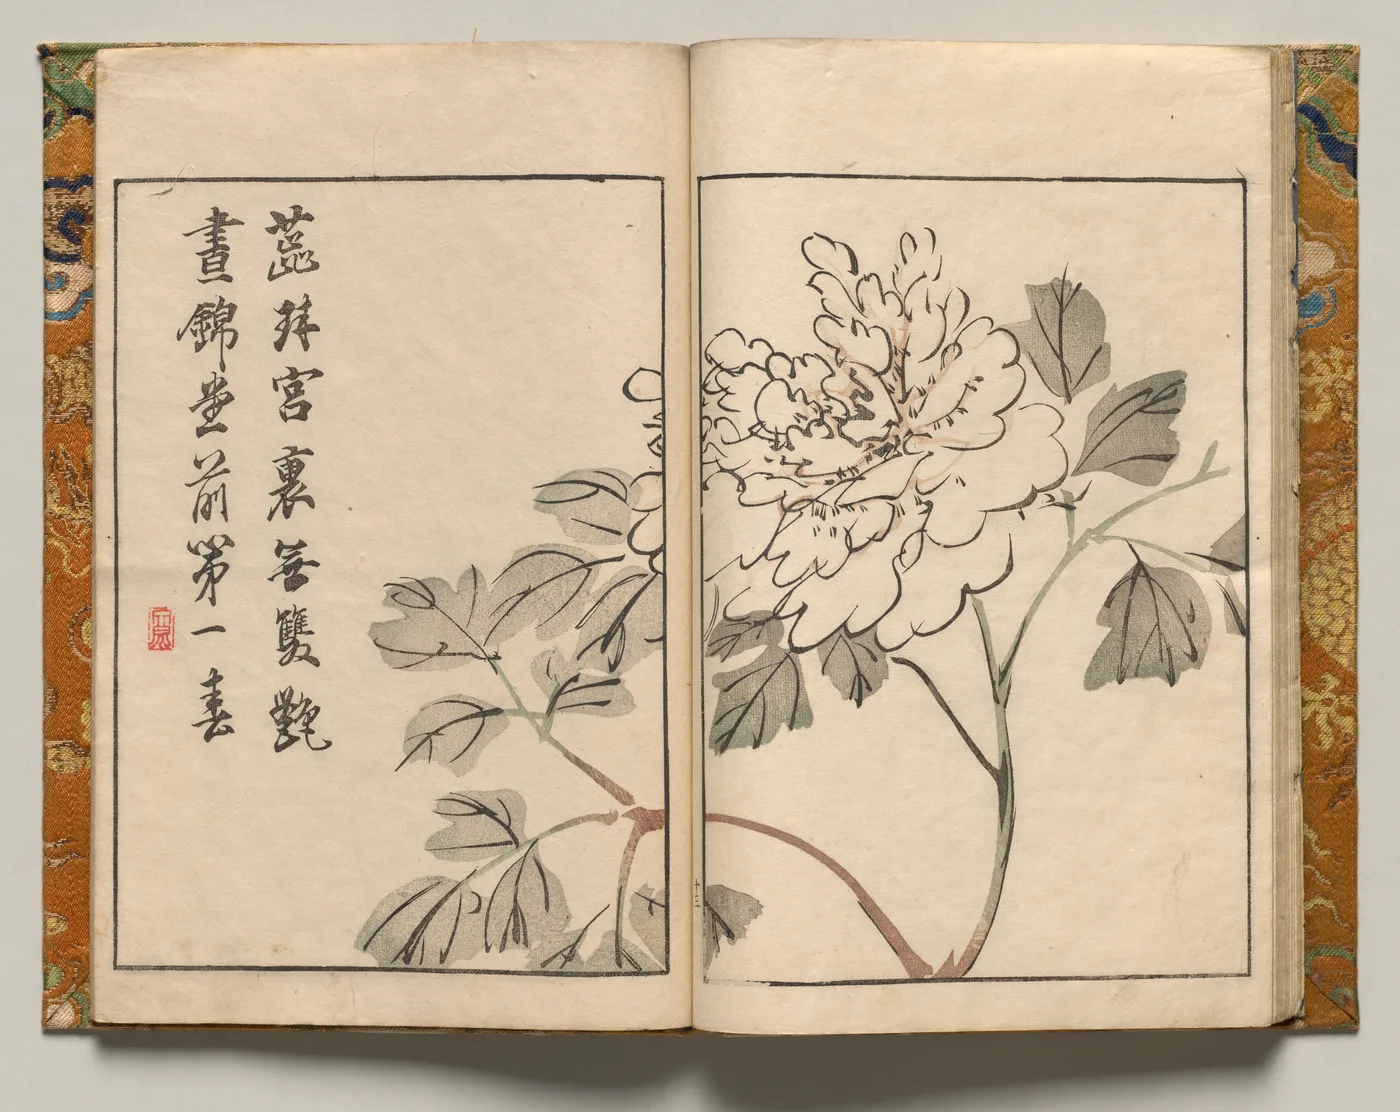 蕊珠宮裏無雙艶
晝錦堂前第一春
十三